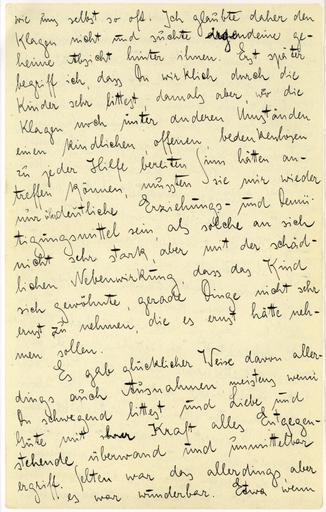 wie uns selbst so oft. Ich glaubte daher den
Klagen nicht und suchte irgendeine ge-
heime Absicht hinter ihnen. Erst später
begriff ich, dass Du wirklich durch die
Kinder sehr littest, damals aber, wo die
Klagen noch unter anderen Umständen
einen kindlichen, offenen, bedenkenlosen
zu jeder Hilfe bereiten Sinn hätten an-
treffen können, mussten sie mir wieder
nur überdeutliche Erziehungs- und Demü-
tigungsmittel sein, als solche an sich
nicht sehr stark, aber mit der schäd-
lichen Nebenwirkung, dass das Kind
sich gewöhnte, gerade Dinge nicht sehr
ernst zu nehmen, die es ernst hätte neh-
men sollen.
Es gab glücklicher Weise davon aller-
dings auch Ausnahmen, meistens wenn
Du schweigend littest und Liebe und
Güte mit ihrer Kraft alles Entgegen-
stehende überwand und unmittelbar
ergriff. Selten war das allerdings aber
es war wunderbar. Etwa wenn